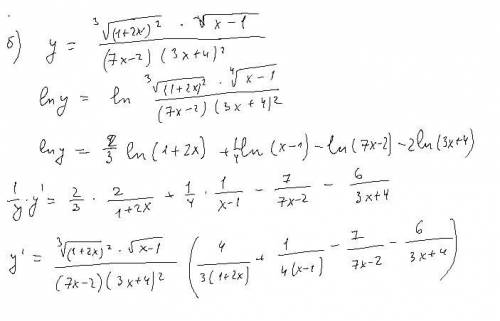 б) y = ∛((1+2x)²) · √(x-1) / ((7x-2)(3x+4)²)
ln y = ln ∛((1+2x)²) · ⁴√(x-1) / ((7x-2)(3x+4)²)
ln y = 2/3 ln(1+2x) + 1/4 ln(x-1) - ln(7x-2) - 2 ln(3x+4)
1/y · y' = 2/3 · 2/(1+2x) + 1/4 · 1/(x-1) - 7/(7x-2) - 6/(3x+4)
y' = ∛((1+2x)²) · √(x-1) / ((7x-2)(3x+4)²) (4/(3(1+2x)) + 1/(4(x-1)) - 7/(7x-2) - 6/(3x+4))